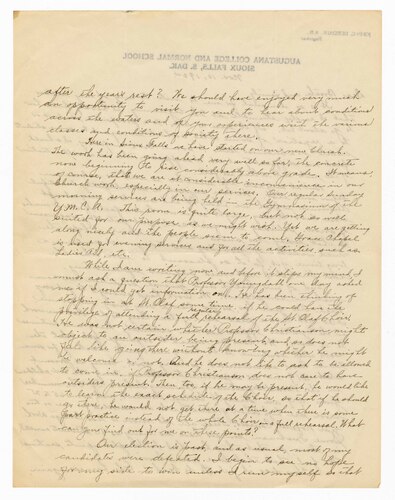 after the year's rest? We should have enjoyed very much
an opportunity to visit you and to hear about conditions
across the waters and of your experiences with the various
classes and conditions of society there.
Here in Sioux Falls we have started on our new church.
The work has been going ahead very well so far, the concrete
now beginning to rise considerably above grade. It means
of course, that we are at considerable inconvenience in our
church work, especially in our services. Our regular Sunday
morning services are being held in the Gymnasium of the
Y.M.C.A. This room is quite large, but not so well
suited for our purpose as we might wish. Yet we are getting
along nicely and the people seem to come. Grace Chapel
is used for evening services and for all the activities such as
Ladies Aid, etc.
While I am writing more and before it slips my mind, I
must ask a question that Professor Youngdahl one day asked
me if I could get information on. He has been thinking of
stopping in at St. Olaf some time if he could have the
privilege of attending a full regular rehearsal of the St. Olaf Choir.
He was not certain whether Professor Christiansen might
object to an outsider being present and so does not
feel like going there without knowing whether he might
be welcome or not. And he does not like to ask to be allowed
to come in, if Professor Christiansen does not care to have
outsiders present. Then too, if he may be present, he would like
to learn the exact schedule of the Choir, so that if he should
go there, he would not get there at a time when there is some
part practice instead of the whole Choir in a full rehearsal. What
can you find out for me on these points?
Our election is past, and as usual, most of my
candidates were defeated. I begin to see no hope
for my side to win unless I run myself. So that